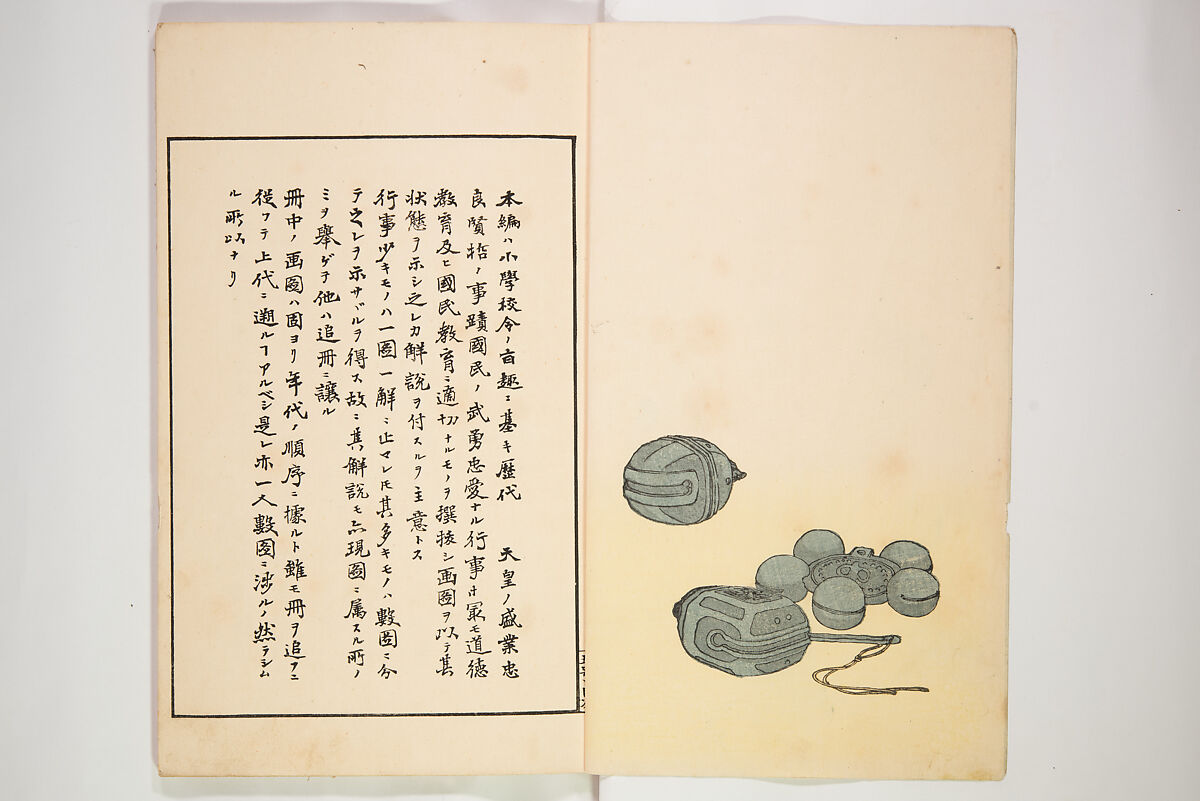 本編ハ小學校令ノ旨趣ニ基キ歴代　天皇ノ盛業忠
良賢哲ノ事蹟國民ノ武勇忠愛ナル行事中最モ道德
教育及ヒ國民教育ニ適切ナルモノヲ撰㧞シ画圖ヲ以テ其
状態ヲ示シ之レカ解説ヲ付スルヲ主意トス
行事少キモノハ一圖一解ニ止マレ𪜈其多キモノハ數圖ニ分
テ之レヲ示サヾルヲ得ス故ニ其解説モ亦現圖ニ属スル所ノ
ミヲ舉ゲテ他ハ追冊ニ讓ル
冊中ノ画圖ハ固ヨリ年代ノ順序ニ據ルト雖モ冊ヲ追フニ
從フテ上代ニ遡ルヿアルベシ是レ亦一人數圖ニ渉ルノ然ラシム
ル所以ナリ